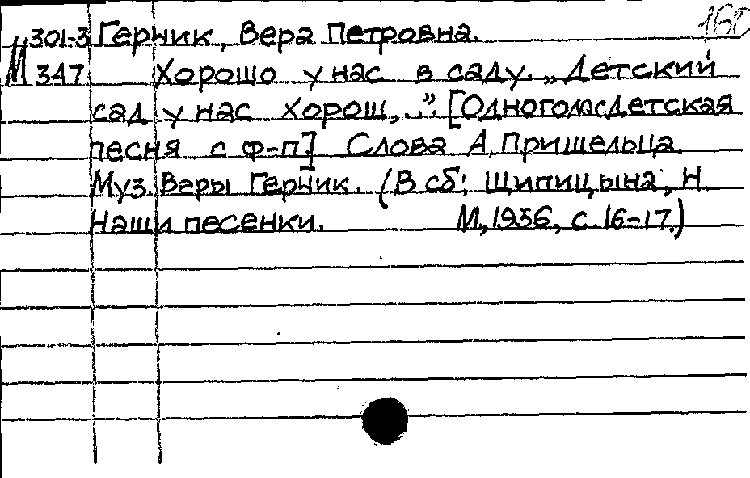 160
М 301-3 Герчик, Вера Петровна.
347 Хорошо у нас в саду. „Детский
сад у нас хорош,..." [Одноголосн детская
песня с ф-п] Слова А. Пришельца.
Муз. Веры Герчик. (В сб: Щипицына, Н.
Наши песенки. М, 1956, с. 16-17.)